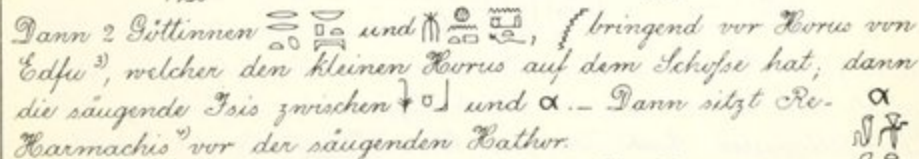 Dann 2 Göttinnen und bringend vor Horus von
Edfu 3), welcher den kleinen Horus auf dem Schoße hat; dann
die säugende Isis zwischen und α. — Dann sitzt Re-
Harmachis 4) vor der säugenden Hathor.
α